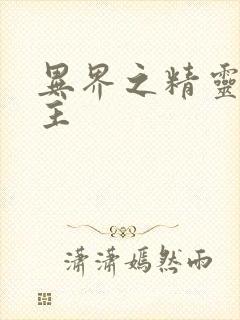 異界之精靈
王
瀟瀟嫣然雨